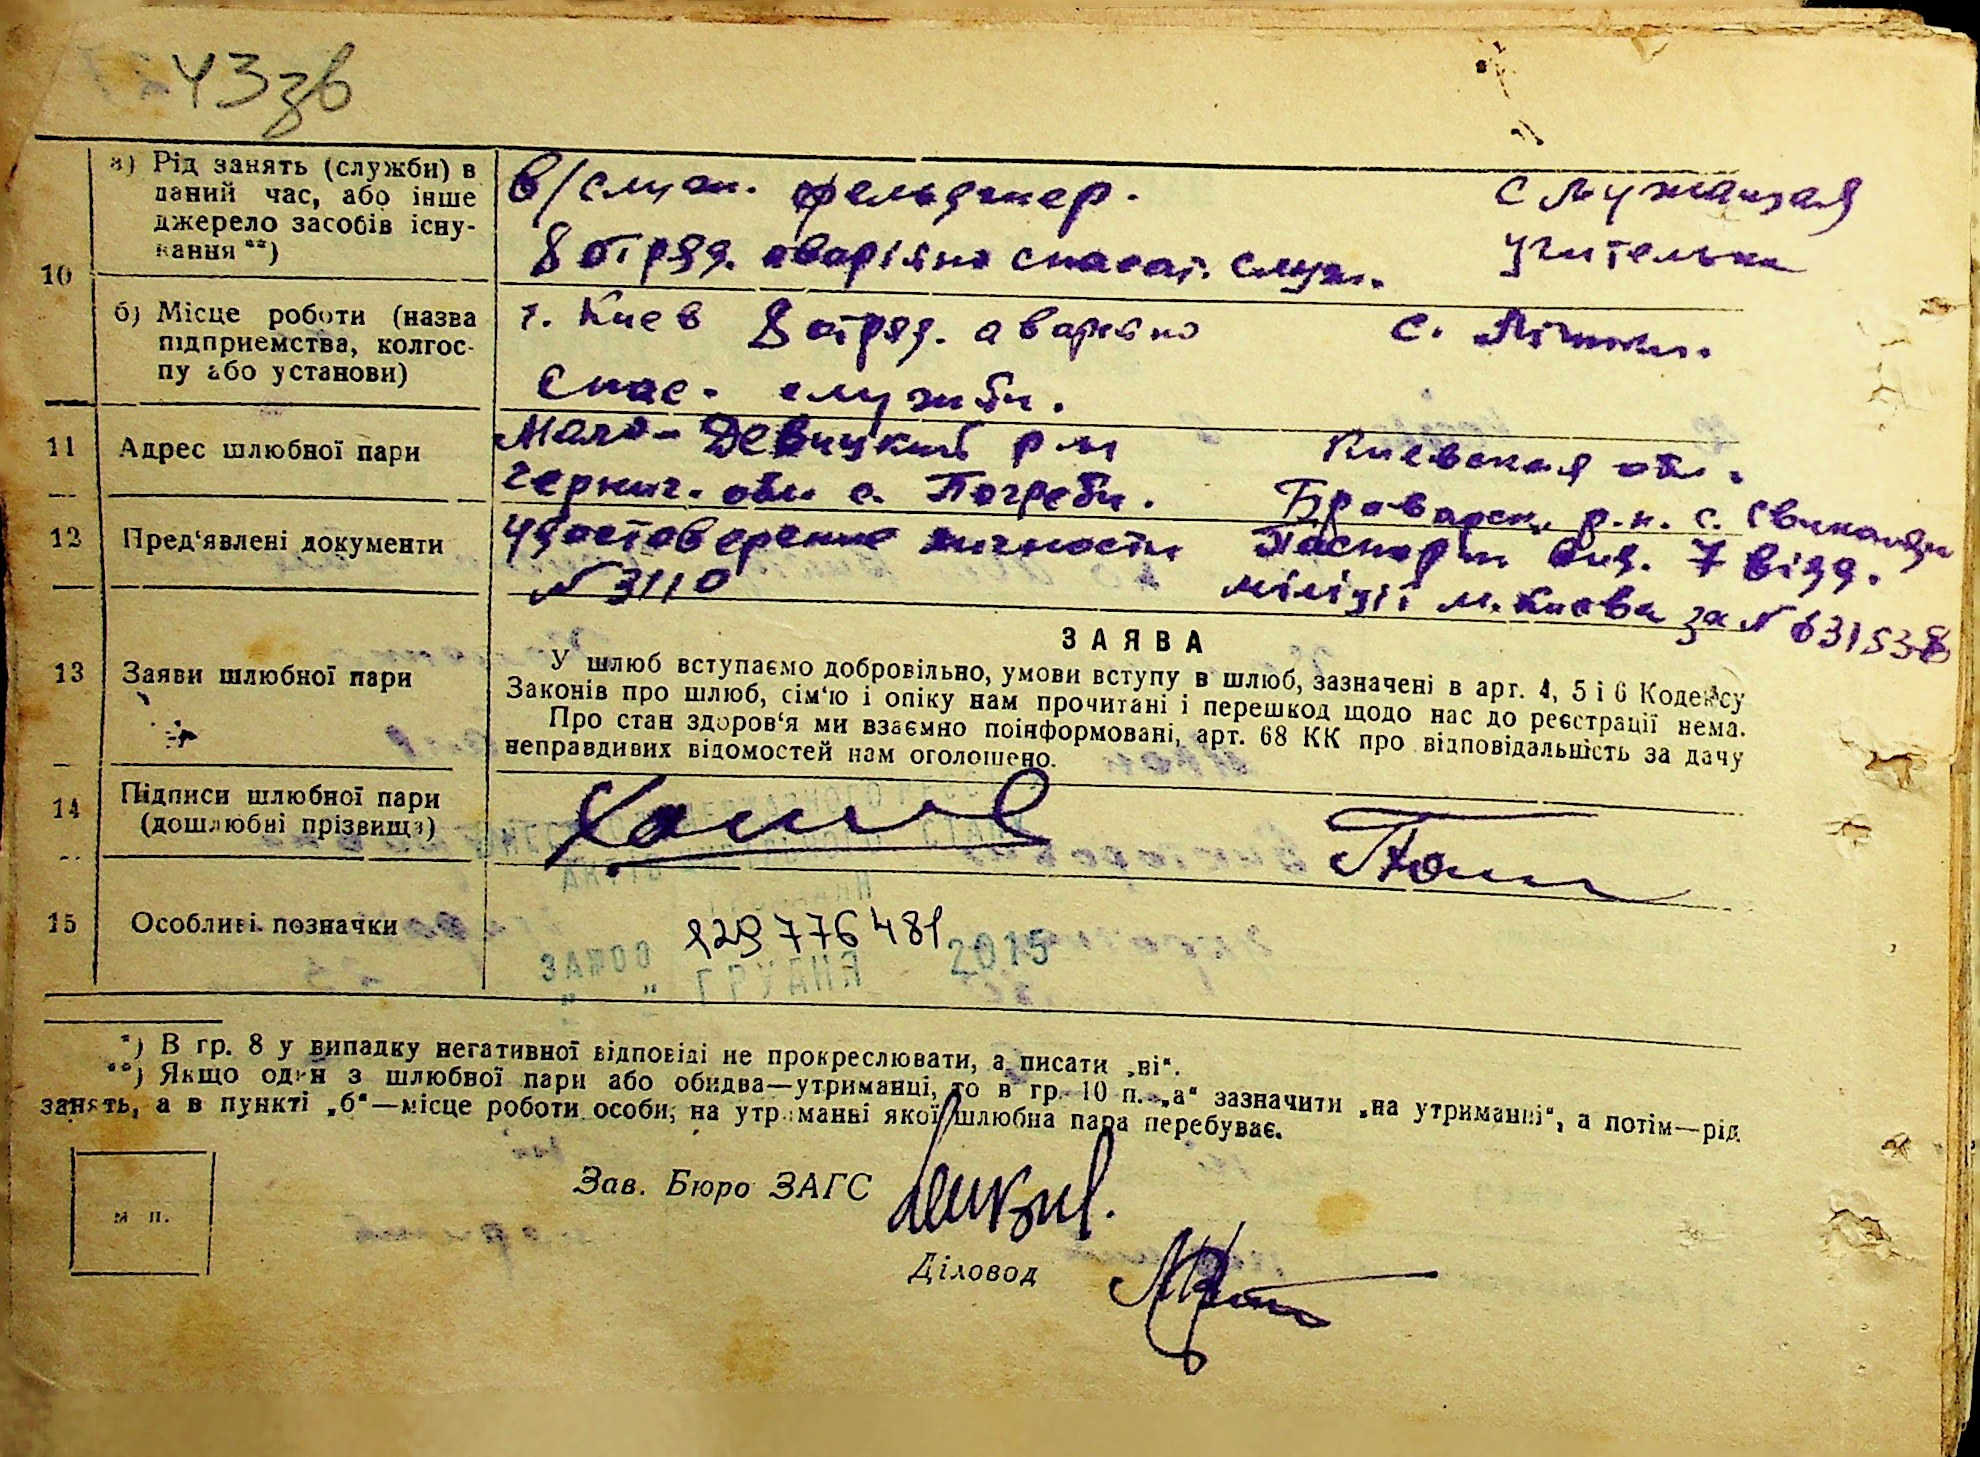 43зв
а) Рід занять (служби) в даний час, або інше джерело засобів існування **)
в/служ. фельдшер.
служащая
8 отряд. аварійно спасат. служ.
учителька
10
б) Місце роботи (назва підприємства, колгоспу або установи)
г. Киев 8 отряд. аварийно
с. Літки.
спас. служби.
11 Адрес шлюбної пари
Мало-Девицкий р-н
Киевская обл.
черниг. обл. с. Погреби.
Броварск. р.н. с.
12 Пред'явлені документи
удостоверение личности
Паспорт вид. 7 відд.
№ 3110
міліції м. Києва за № 631538
13 Заяви шлюбної пари
ЗАЯВА
У шлюб вступаємо добровільно, умови вступу в шлюб, зазначені в арт. 4, 5 і 6 Кодексу
Законів про шлюб, сім'ю і опіку нам прочитані і перешкод щодо нас до реєстрації нема.
Про стан здоров'я ми взаємно поінформовані, арт. 68 КК про відповідальність за дачу
неправдивих відомостей нам оголошено.
14 Підписи шлюбної пари
(дошлюбні прізвища)
15 Особливі позначки
129776481
2015
ГРУДНЯ
*) В гр. 8 у випадку негативної відповіді не прокреслювати, а писати „ні“.
**) Якщо один з шлюбної пари або обидва—утриманці, то в гр. 10 п. „а“ зазначити „на утриманні“, а потім—рід
занять, а в пункті „б“—місце роботи особи, на утриманні якої шлюбна пара перебуває.
Зав. Бюро ЗАГС
м п.
Діловод